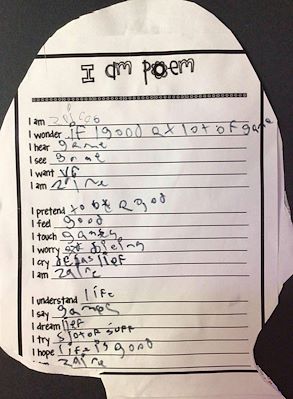 I am poem
I am
I wonder If I good at lot of game
I hear game
I see game
I want vr
I am zaire
I pretend to be a god
I feel good
I touch games
I worry
I cry
I am zaire
I understand life
I say games
I dream lief
I try
I hope life is good
I am zaire